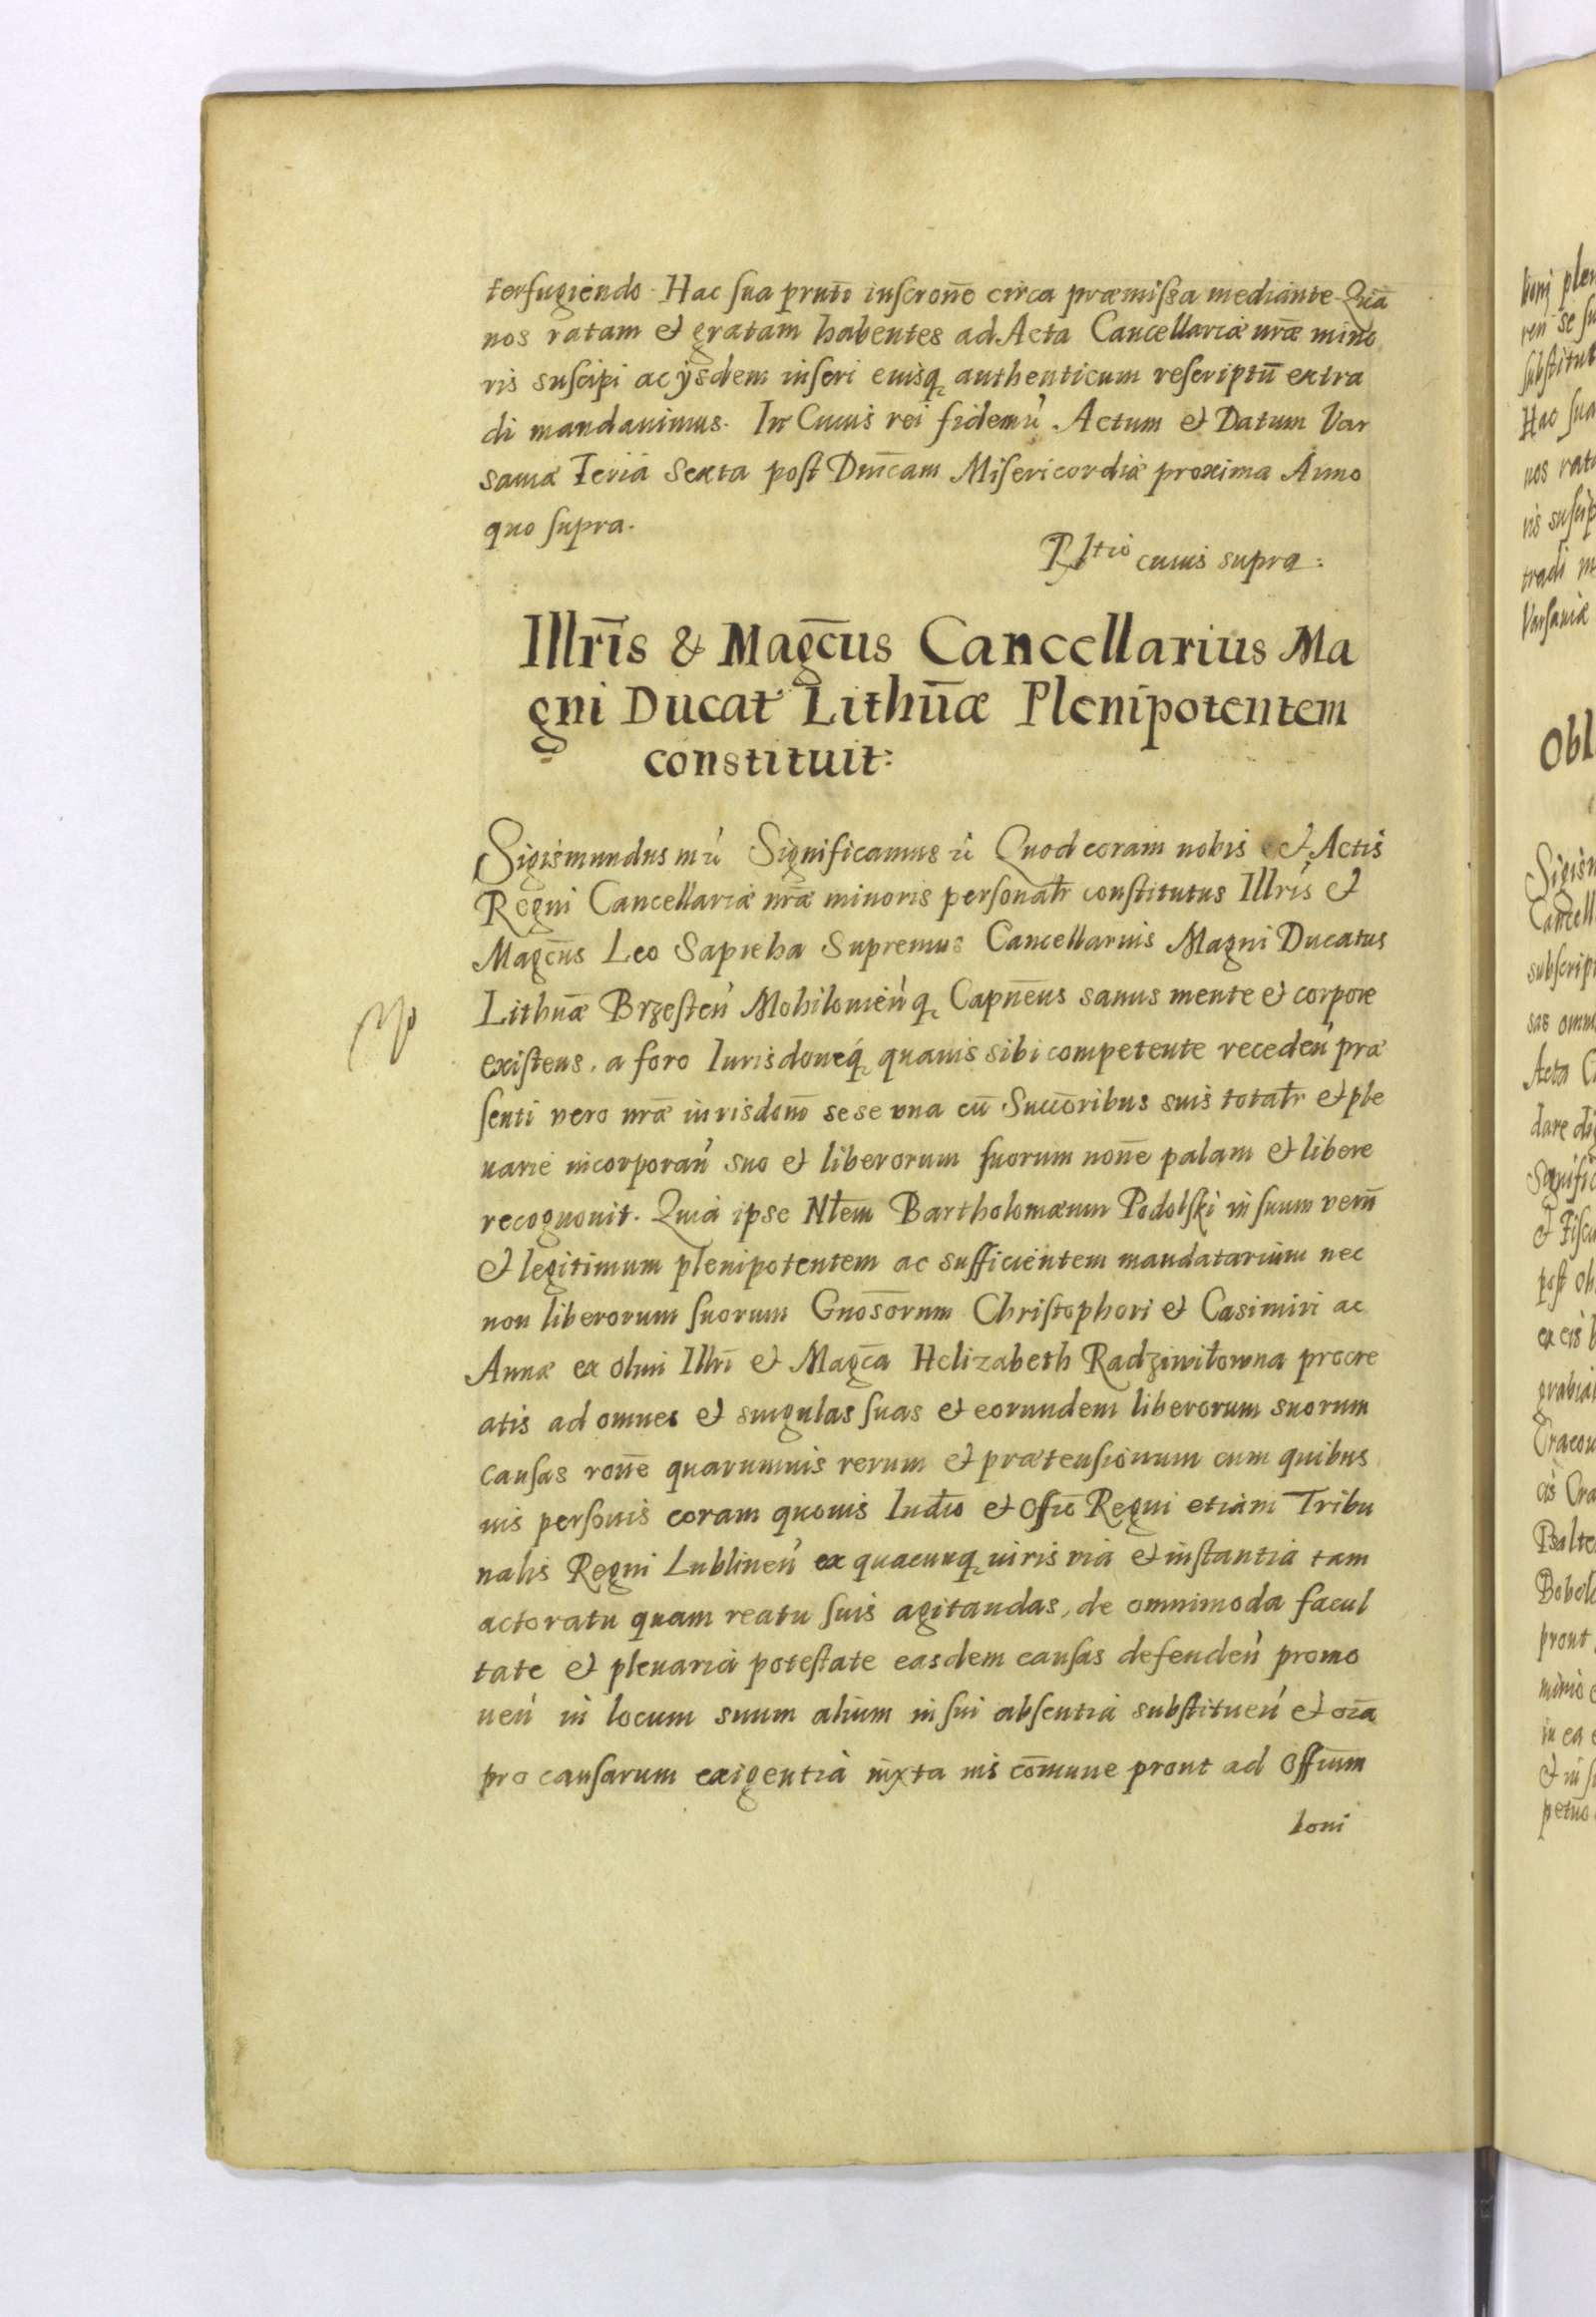 terfugiendo. Hac sua prntō inscronē circa præmissa mediante. Quā
nos ratam et gratam habentes ad Acta Cancellariæ nrǣ mino
ris suscipi ac ijsdem inseri euisq. authenticum rescriptū extra
di mandauimus. In Cuius rei fidem ù. Actum et Datum Var
sauiæ Feriâ Sexta post Dnīcam Misericordiæ proxima Anno
quo supra.
Rltio cuius supra:
Illrīs & Magc̄us Cancellarius Ma
gni Ducat Lithūæ Plenipotentem
constituit:
Sigismundus m ù Significamus ù Quod coram nobis et Actis
Regni Cancellariæ nrǣ minoris personalr constitutus Illrīs et
Magc̄us Leo Sapieha Supremus Cancellarius Magni Ducatus
Lithuǣ Brzesteń Mohilouieńq. Capnēus sanus mente et corpore
existens, a foro Iurisdoneq. quauis sibi competente recedeń præ
senti vero nrǣ iurisdonō sese una cū Succōribus suis totalr et ple
narie incorporań suo et liberorum suorum nonē palam et libere
recognouit. Quia ipse Nlem Bartholomæum Podolski in suum verū
et legitimum plenipotentem ac sufficientem mandatarium nec
non liberorum suorum Gnosōrum Christophori et Casimiri ac
Annæ ex olim Illrī et Magc̄a Helizabeth Radziwiłowna procre
atis ad omnes et singulas suas et eorundem liberorum suorum
causas ronē quarumuis rerum et prætensionum cum quibus
uis personis coram quouis Iudio et Offiō Regni etiam Tribu
nalis Regni Lublineń ex quacunq. iuris via et instantia tam
actoratu quam reatu suis agitandas, de omnimoda facul
tate et plenaria potestate easdem causas defendeń promo
ueń in locum suum alium in sui absentia substitueń et oīa
pro causarum exigentia iuxta ius com̄une prout ad Offium
boni